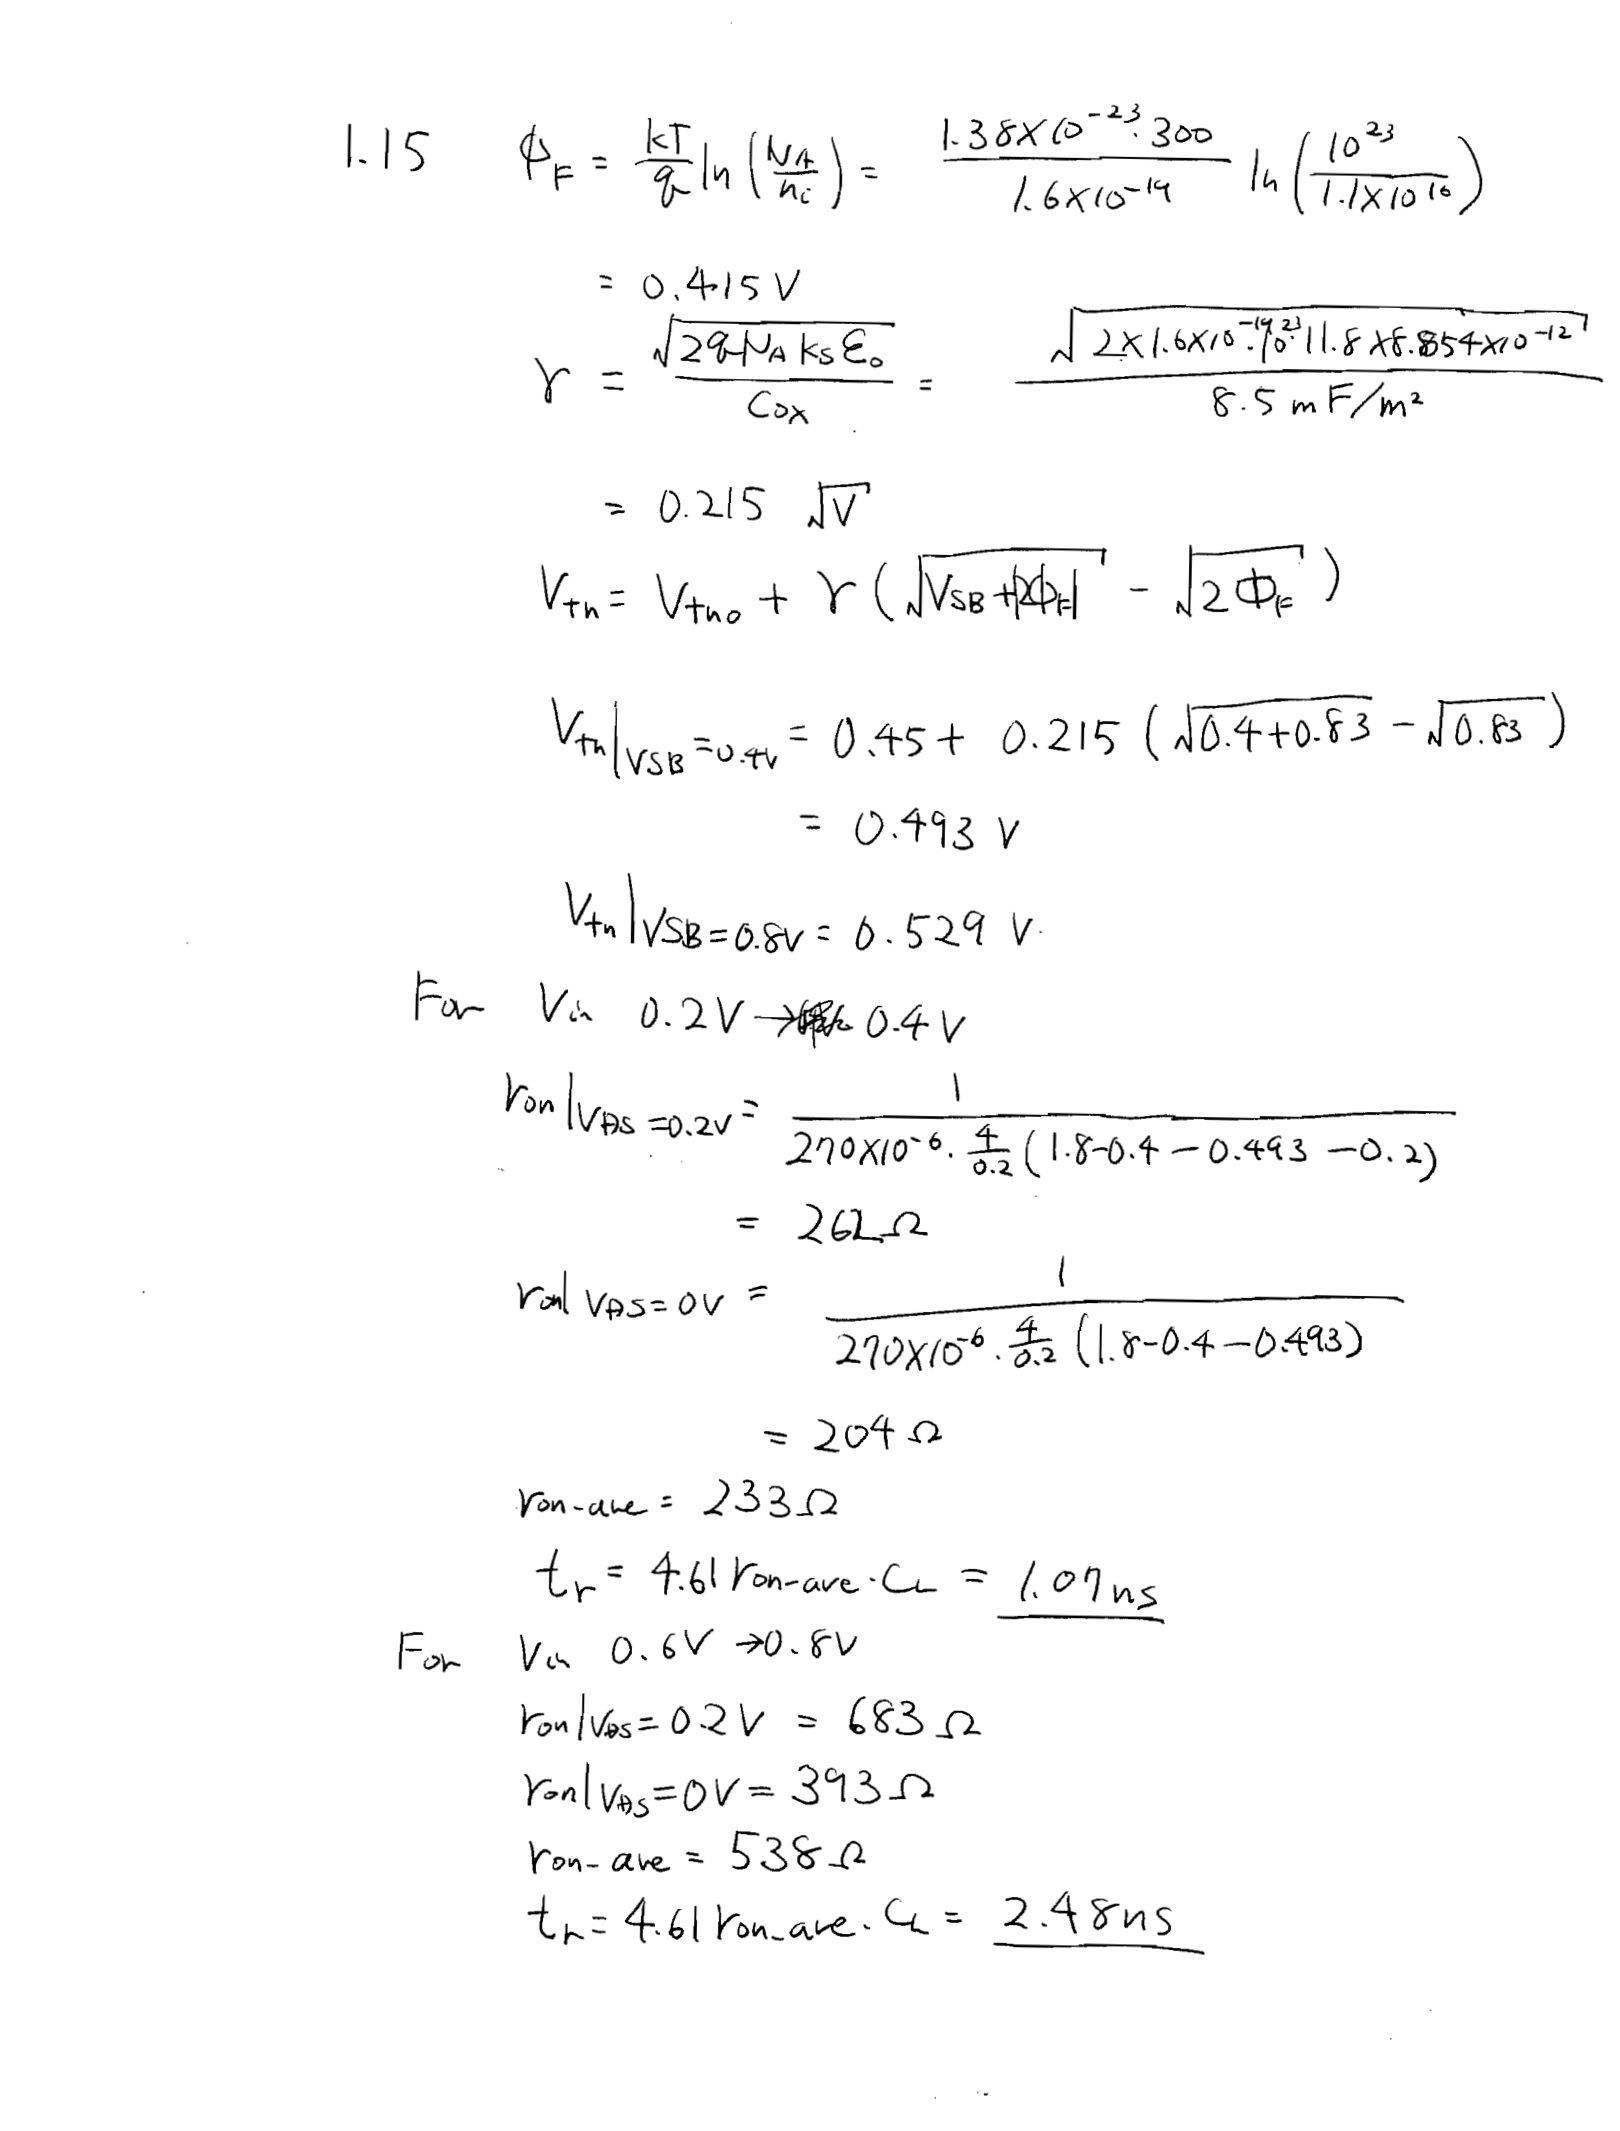 1.15 ϕF = kT/q ln (NA/ni) = 1.38×10^-23·300 / 1.6×10^-19 ln (10^23 / 1.1×10^16)
= 0.415 V
γ = √(2qNA Ks ε0) / Cox = √(2×1.6×10^-19·10^23·11.8×8.854×10^-12) / 8.5 mF/m²
= 0.215 √V
Vtn = Vtno + γ (√(VSB+|2ΦF|) - √(2ΦF))
Vtn|VSB=0.4V = 0.45 + 0.215 (√(0.4+0.83) - √0.83)
= 0.493 V
Vtn|VSB=0.8V = 0.529 V.
For Vin 0.2V → 0.4V
ron|VDS=0.2V = 1 / 270×10^-6 · 4/0.2 (1.8-0.4-0.493-0.2)
= 262Ω
ron|VDS=0V = 1 / 270×10^-6 · 4/0.2 (1.8-0.4-0.493)
= 204Ω
ron-ave = 233Ω
tr = 4.61 ron-ave·CL = 1.07ns
For Vin 0.6V → 0.8V
ron|VDS=0.2V = 683Ω
ron|VDS=0V = 393Ω
ron-ave = 538Ω
tr = 4.61 ron-ave·CL = 2.48ns